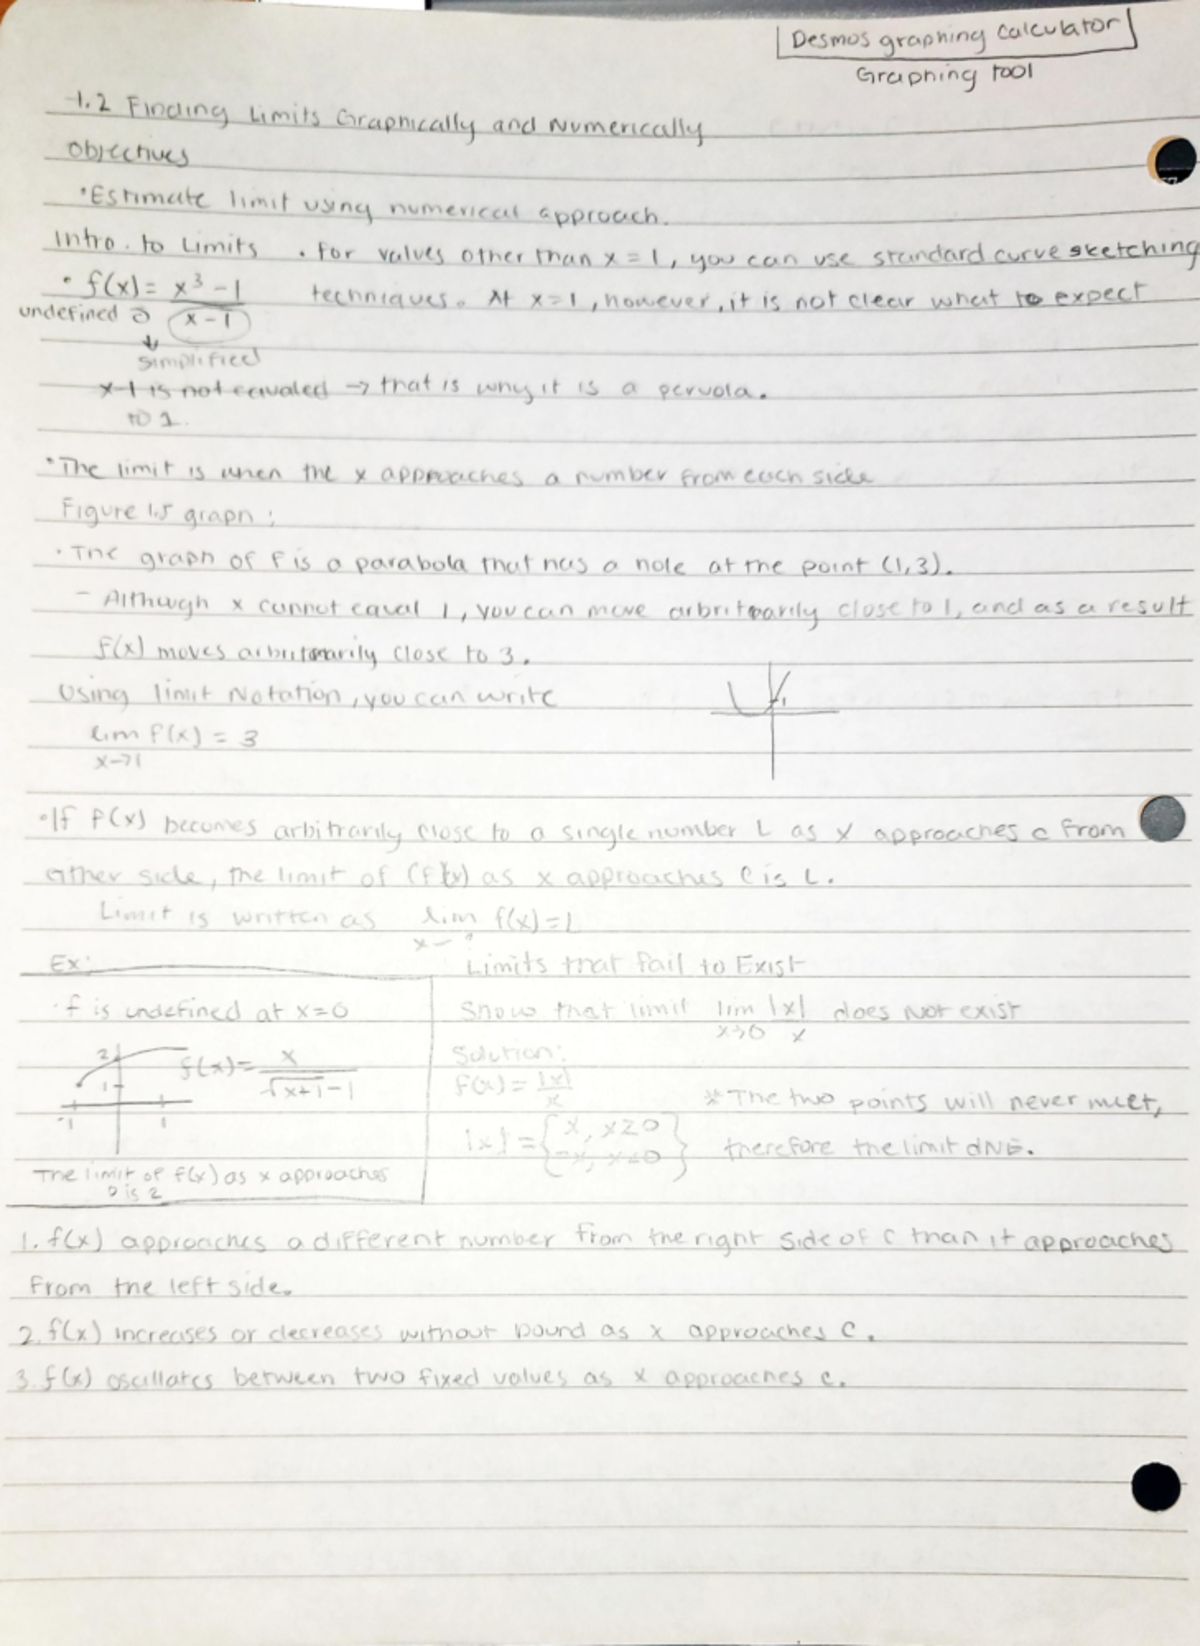 Desmos graphing calculator
Graphing tool
1.2 Finding Limits Graphically and Numerically
Objectives
• Estimate limit using numerical approach.
Intro. to Limits • For values other than x = 1, you can use standard curve sketching
• f(x) = x³ - 1 / x - 1 techniques. At x = 1, however, it is not clear what to expect
undefined
simplified
x-1 is not equaled → that is why it is a pervola.
to 1.
• The limit is when the x approaches a number from each side
Figure 1.5 graph:
• The graph of f is a parabola that has a hole at the point (1,3).
- Although x cannot equal 1, you can move arbritrarily close to 1, and as a result
f(x) moves arbritrarily close to 3.
Using limit Notation, you can write
lim f(x) = 3
x→1
• If f(x) becomes arbitrarily close to a single number L as x approaches c from
either side, the limit of (f(x) as x approaches c is L.
Limit is written as lim f(x) = L
x→
Ex: Limits that fail to Exist
• f is undefined at x=0 Show that limit lim |x|/x does not exist
x→0
2 f(x) = x / √x+1 - 1 Solution:
1 f(x) = |x|/x * The two points will never meet,
-1 1 |x| = {x, x≥0 therefore the limit dNE.
-x, x≤0}
The limit of f(x) as x approaches
0 is 2
1. f(x) approaches a different number from the right side of c than it approaches
from the left side.
2. f(x) increases or decreases without bound as x approaches c.
3. f(x) oscillates between two fixed values as x approaches c.